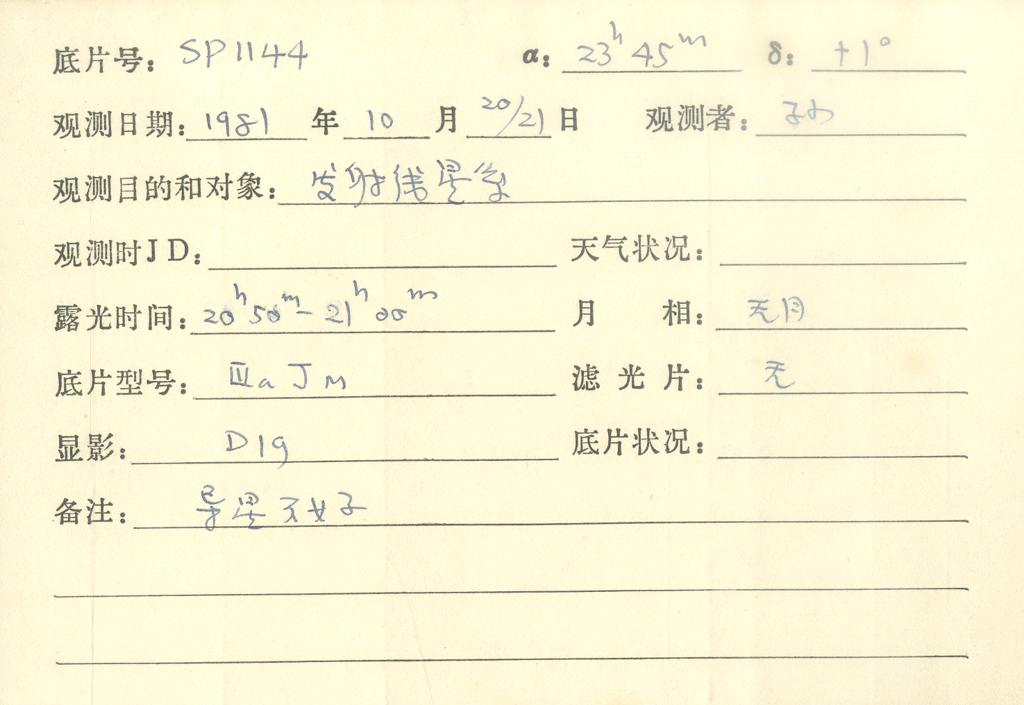 底片号: SP1144 α: 23h 45m δ: +1°
观测日期: 1981 年 10 月 20/21 日 观测者: 孙
观测目的和对象: 发射线星系
观测时JD: 天气状况:
露光时间: 20h50m-21h00m 月 相: 无月
底片型号: ⅢaJM 滤光片: 无
显影: D19 底片状况:
备注: 导星不好